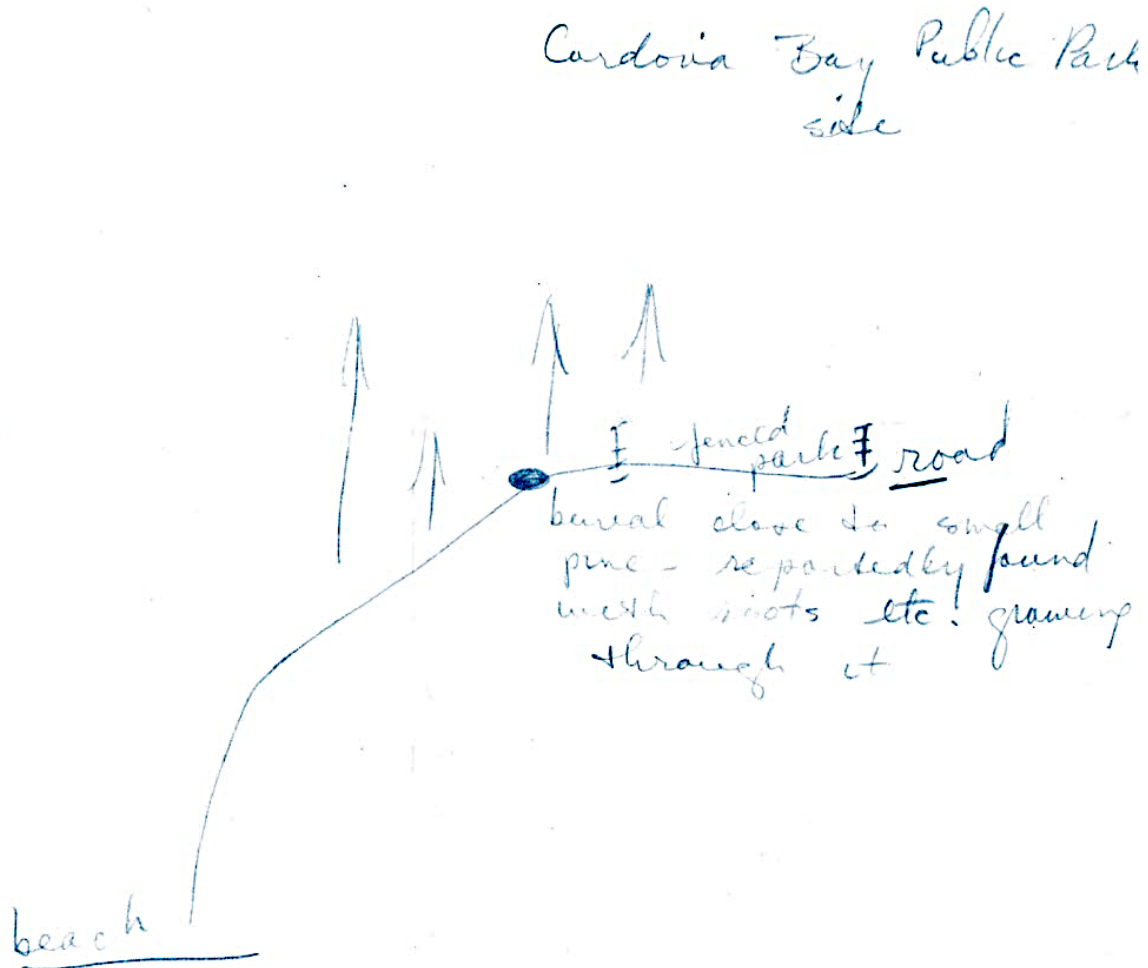 Cordova Bay Public Park
site
fenced
park
road
burial close to small
pine - reportedly found
with roots etc. growing
through it
beach